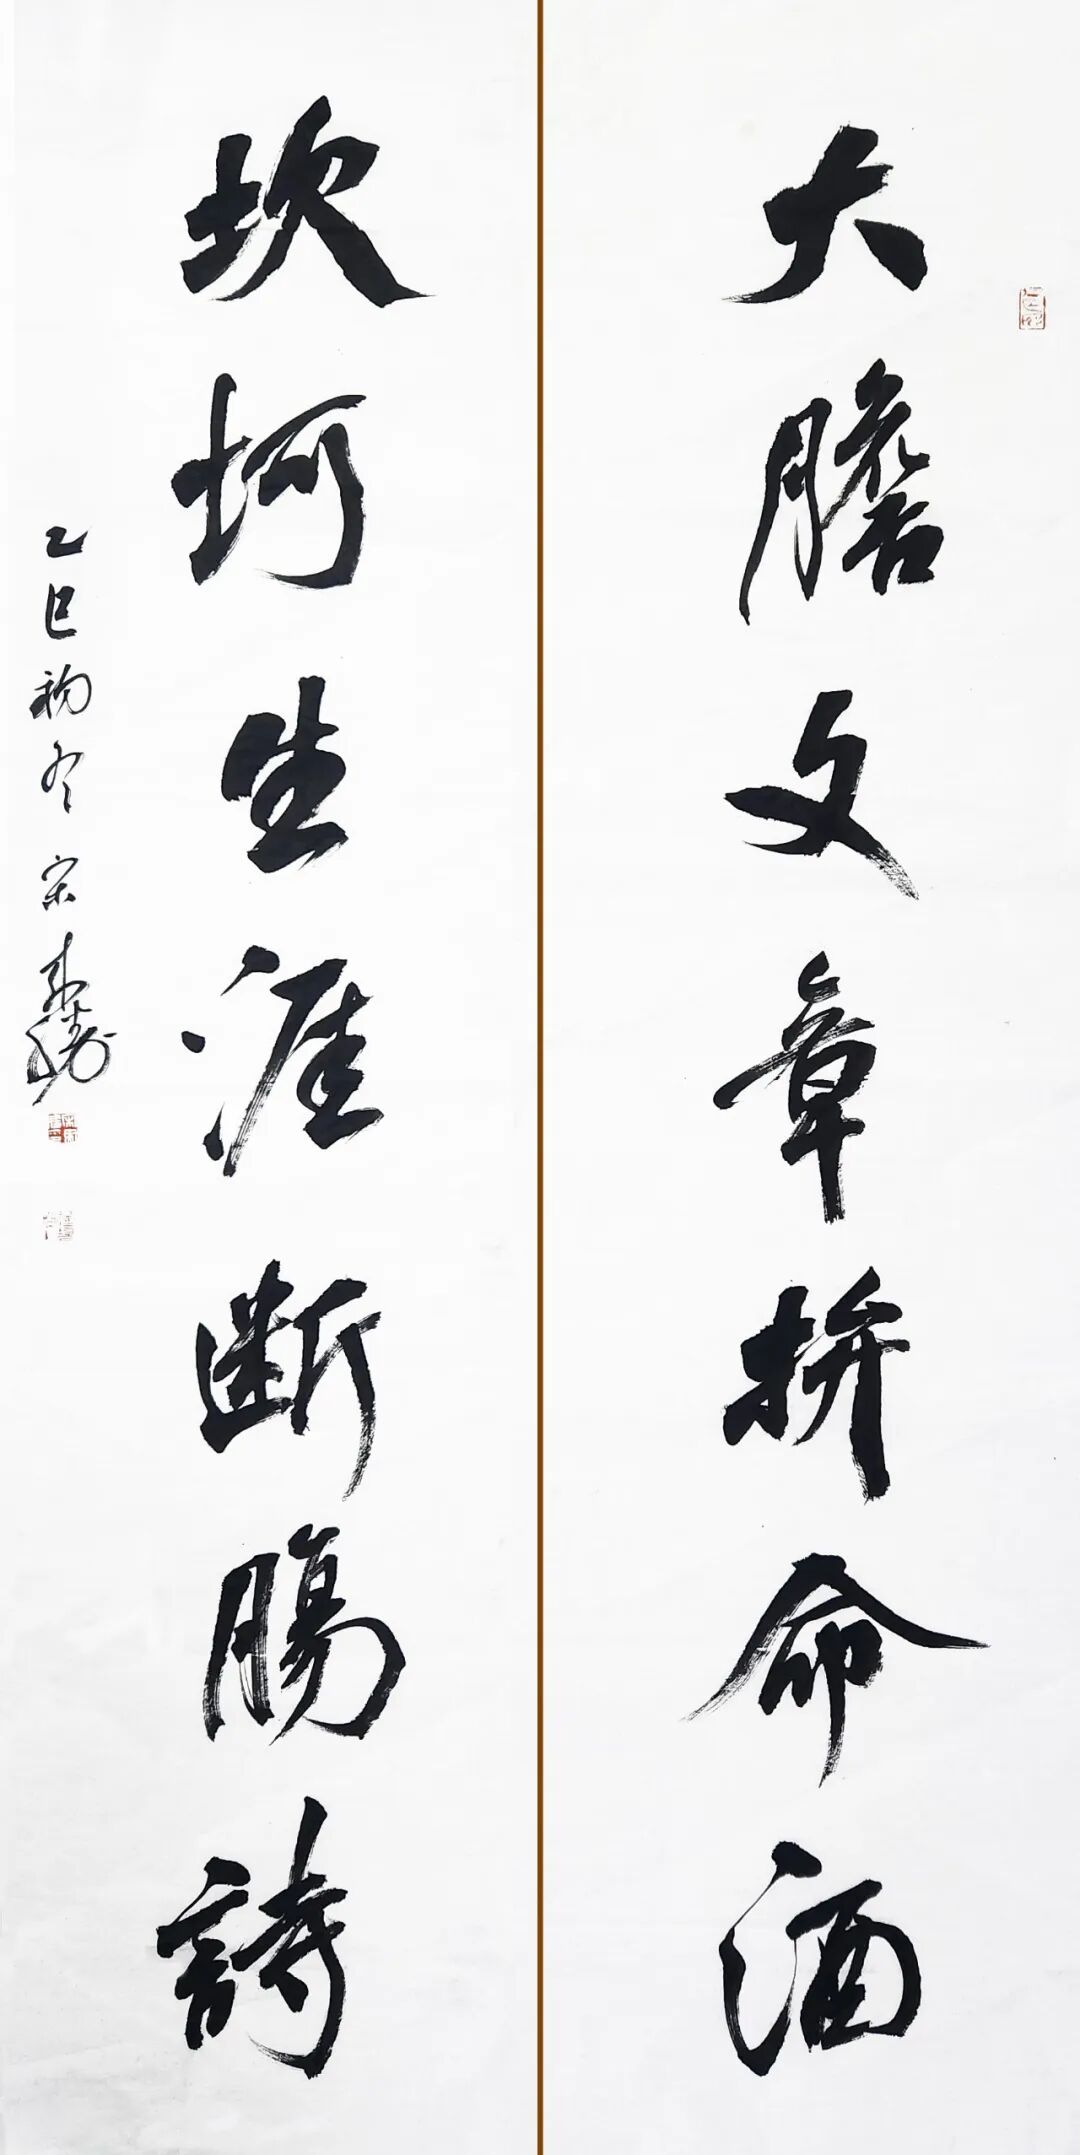 大膽文章拚命酒
坎坷生涯斷腸詩
乙巳初冬宋